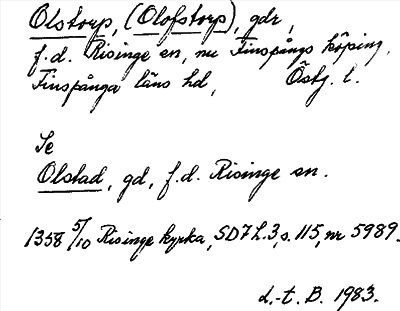 Olstorp, (Olofstorp), gdr,
f.d. Risinge sn, nu Finspångs köping,
Finspånga läns hd, Östg. l.
Se
Olstad, gd, f.d. Risinge sn.
1358 5/10 Risinge kyrka, SD 7 h.3, s. 115, nr 5989.
L.-t. B. 1983.